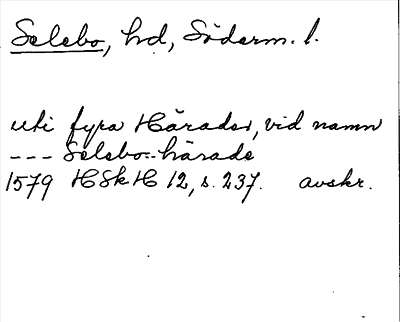 Selebo, hd, Söderm. l.
uti fyra Härader, vid namn
--- Selebo-härade
1579 HSkH 12, s. 237. avskr.